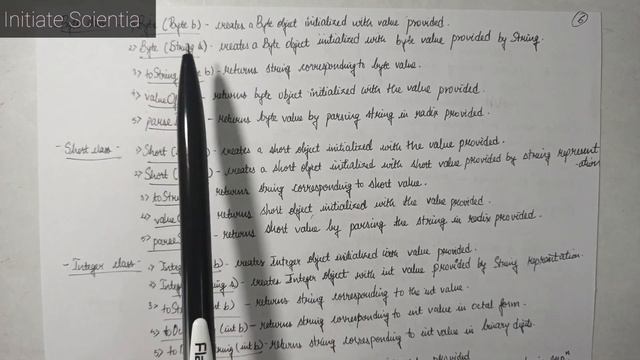 Initiate Scientia
Byte (Byte b) - creates a Byte object initialized with value provided.
6
2) Byte (String s) - creates a Byte object initialized with byte value provided by String.
3) toString b) - returns string corresponding to byte value.
4) valueO - returns byte object initialized with the value provided.
5) parse - returns byte value by parsing string in radix provided.
- Short class - 1) Short ( ) - creates a short object initialized with the value provided.
2) Short ( ) - creates a short object initialized with short value provided by string represent
-ation
3) toSt returns string corresponding to short value.
4) value returns short object initialized with the value provided.
5) parse returns short value by parsing the string in radix provided.
- Integer class - 1) Integ b) - creates Integer object initialized with value provided.
2) Integ ing s) - creates Integer object with int value provided by String representation.
3) toSt int b) - returns string corresponding to the int value.
4) toOc (int b) - returns string corresponding to int value in octal form.
5) to ring (int b) - returns string corresponding to int value in binary digits.
Fla